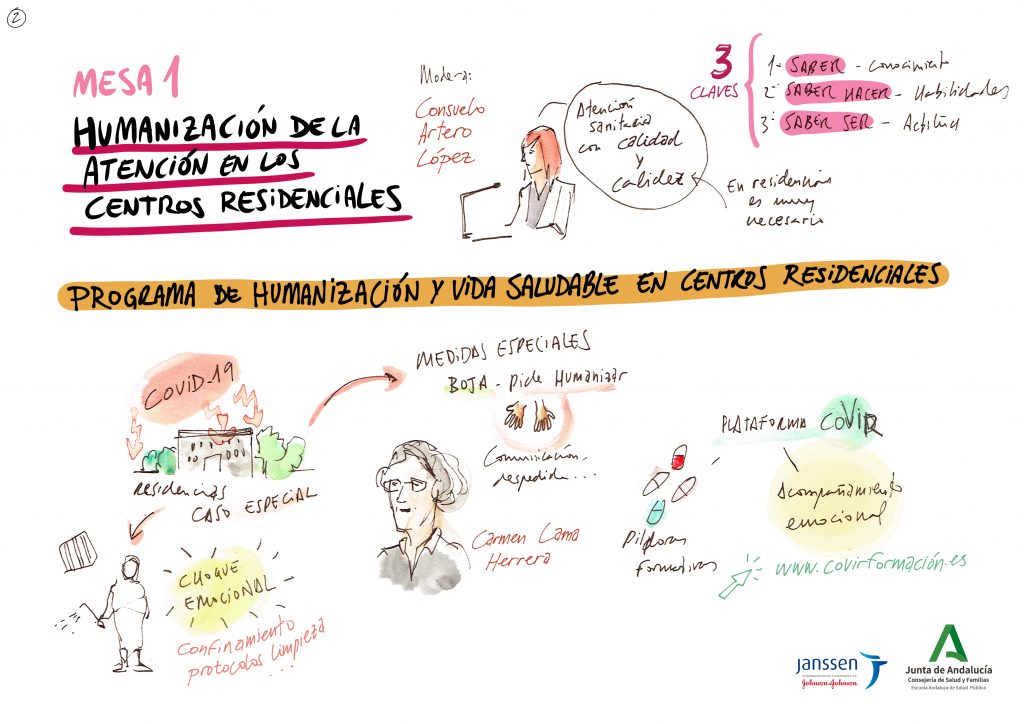 2
MESA 1
HUMANIZACIÓN DE LA
ATENCIÓN EN LOS
CENTROS RESIDENCIALES
Modera:
Consuelo
Artero
López
Atención
sanitaria
con calidad
y
calidez
En residencias
es muy
necesario
3
CLAVES
1- SABER - Conocimiento
2- SABER HACER - Habilidades
3- SABER SER - Actitud
PROGRAMA DE HUMANIZACIÓN Y VIDA SALUDABLE EN CENTROS RESIDENCIALES
COVID-19
Residencias
CASO ESPECIAL
CHOQUE
EMOCIONAL
Confinamiento
protocolos limpieza
...
MEDIDAS ESPECIALES
BOJA - Pide Humanizar
Comunicación,
despedida...
Carmen Lama
Herrera
PLATAFORMA COVIR
Píldoras
Formativas
Acompañamiento
emocional
www.covirformación.es
janssen
PHARMACEUTICAL COMPANIES OF
Johnson & Johnson
Junta de Andalucía
Consejería de Salud y Familias
Escuela Andaluza de Salud Pública